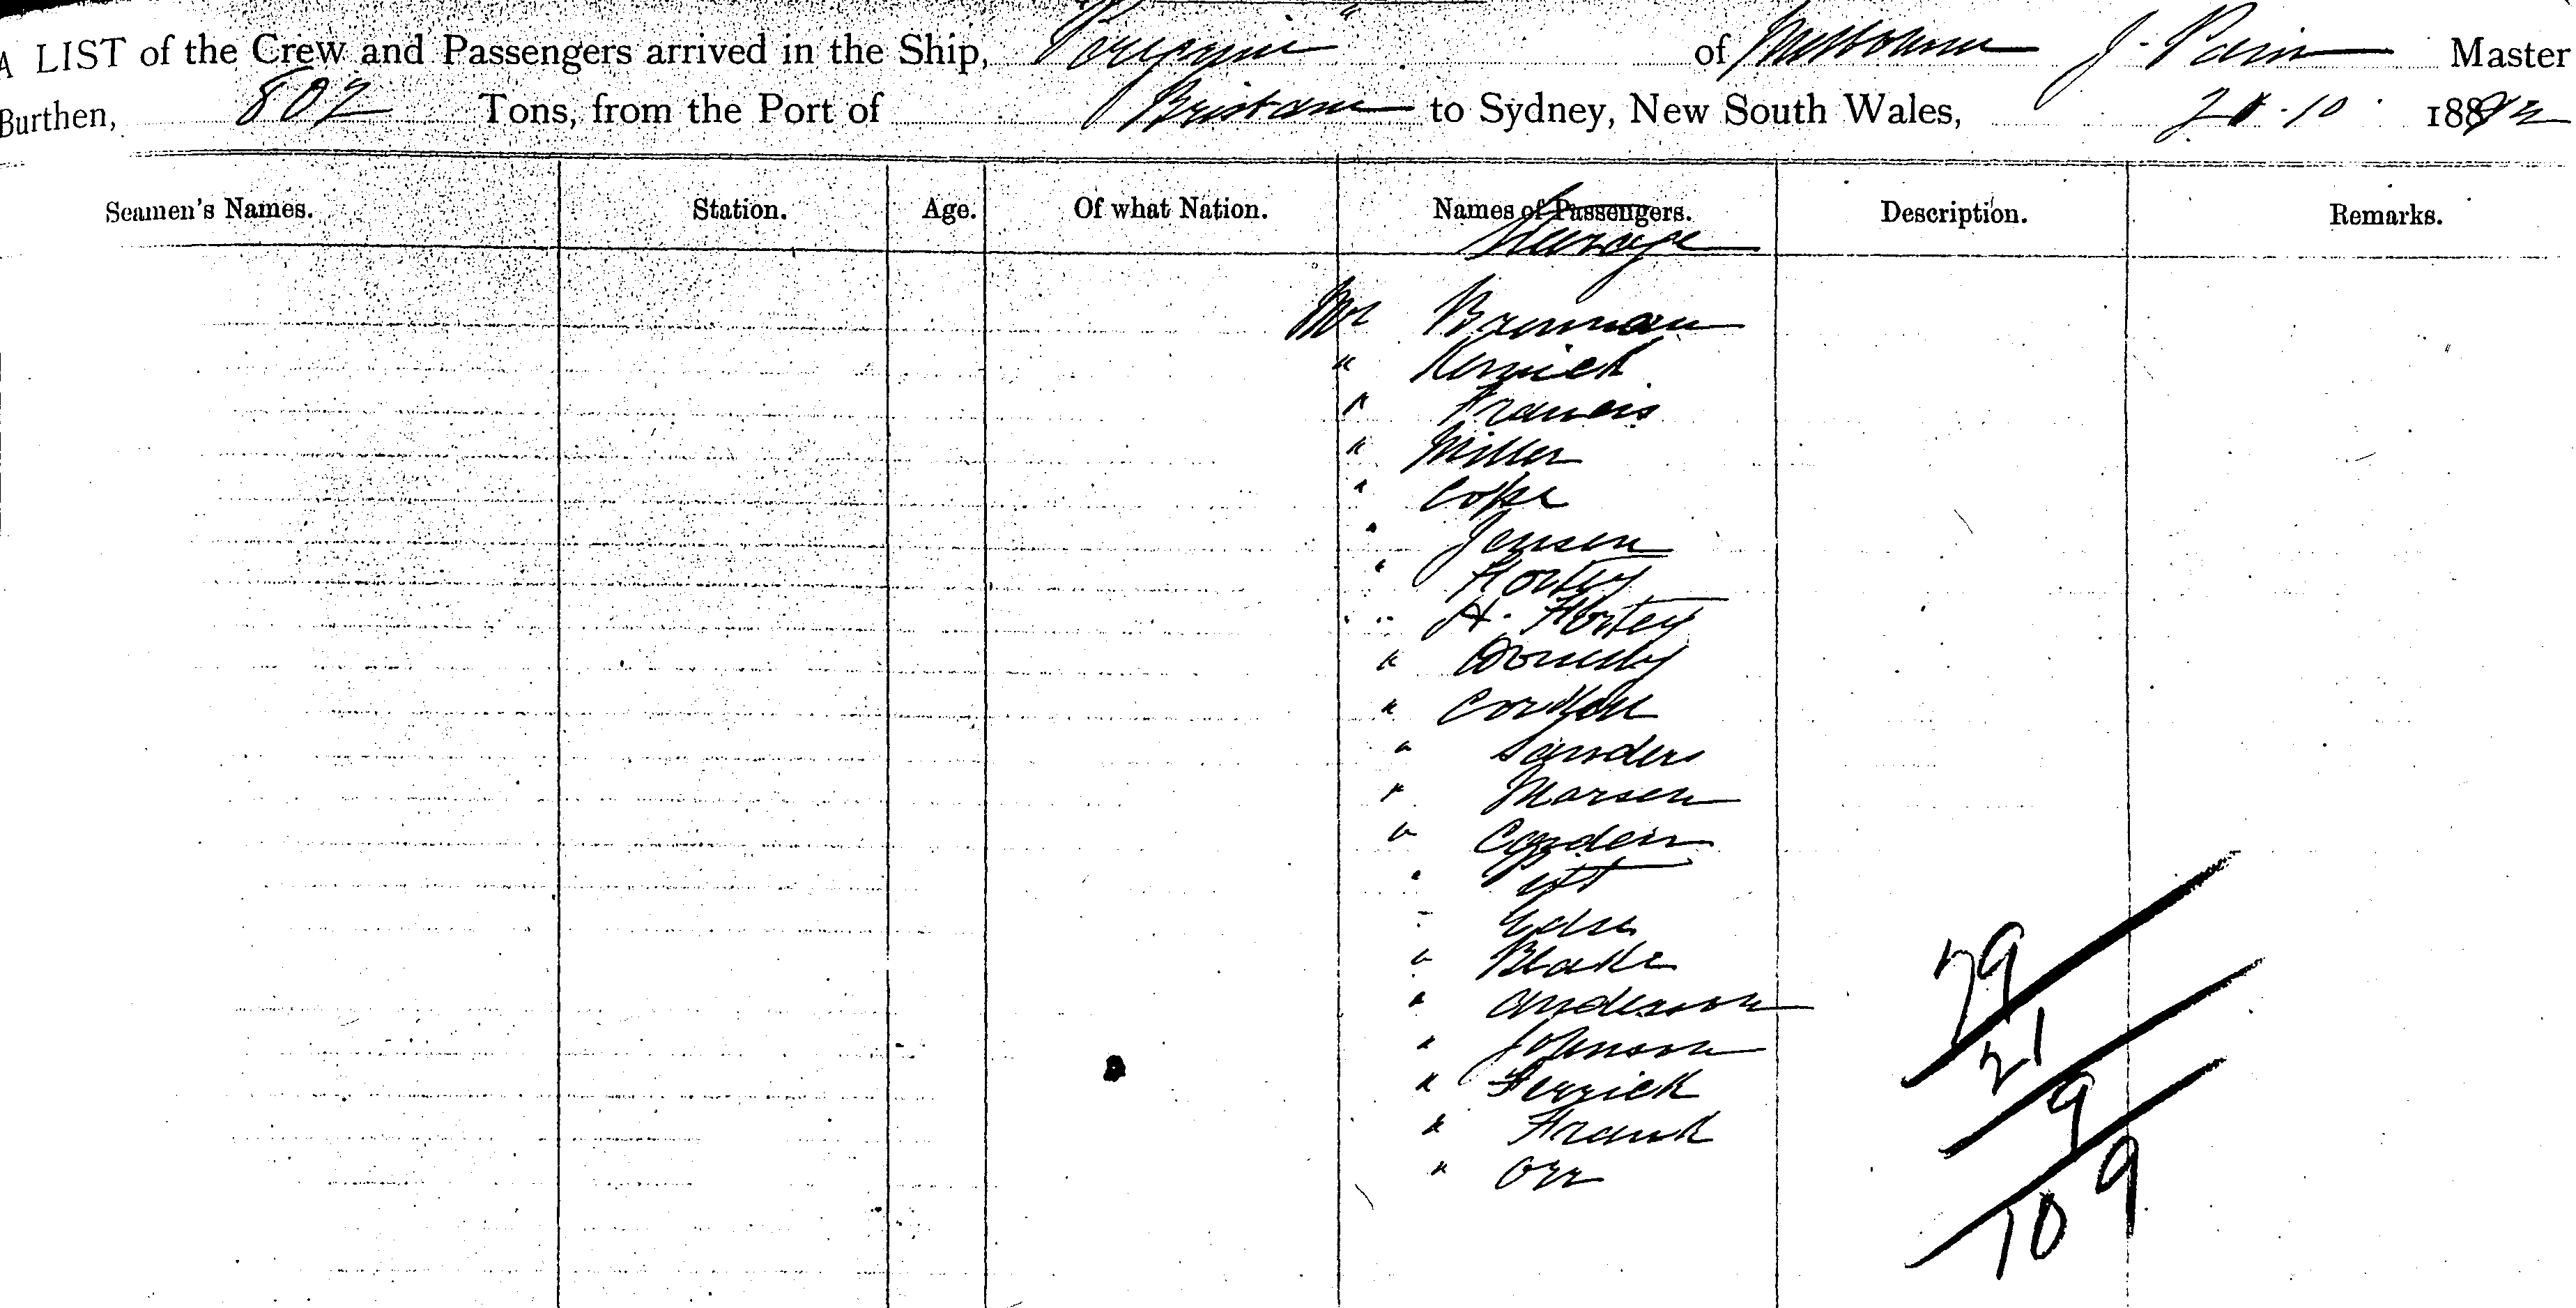 A LIST of the Crew and Passengers arrived in the Ship, "Peregrine" of Melbourne J. Pain Master
Burthen, 802 Tons, from the Port of Brisbane to Sydney, New South Wales, 10 1892
Seamen's Names. Station. Age. Of what Nation. Names of Passengers. Description. Remarks.
Steerage
Mr Brennan
" Kernick
" Francis
" Miller
" Cope
" Jensen
" Hortey
" H. Hortey
"
"
" Sanders
" Marsen
"
"
"
" Blake
" Anderson
" Johnson
" Derrick
" Frank
" Orr
79
21
9
109